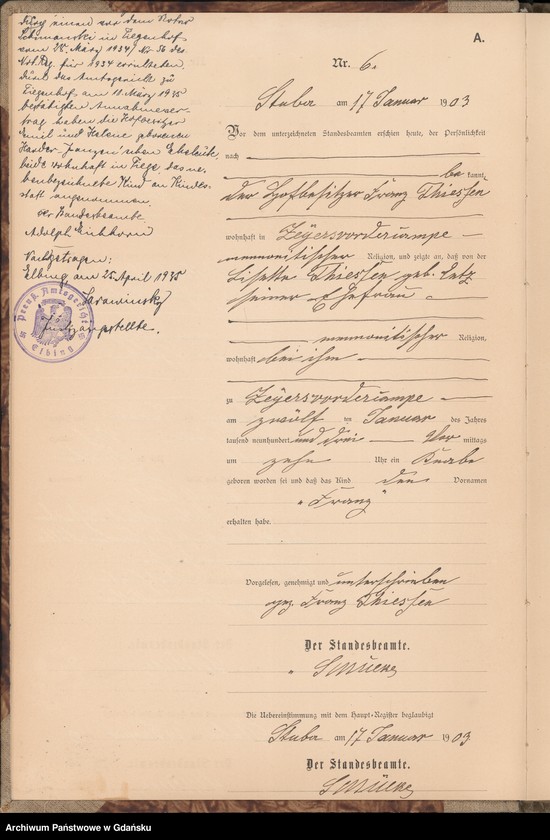 Durch einen vor dem Notar
Schimanski in Tiegenhof
vom 28. März 1934, Nr. 56 des
Not. Reg. für 1934 errichteten
durch das Amtsgericht zu
Tiegenhof am 11. März 1935
bestätigten Annahmever-
trag haben die Hofbesitzer
Emil und Helene geborenen
Harder-Janzen'schen Eheleute,
beide wohnhaft in Tiege das ne-
benbezeichnete Kind an Kindes-
statt angenommen.
Der Standesbeamte
Adolph Eichhorn
Nachgetragen:
Elbing am 25. April 1935
Sarawinsky
Justizangestellte.
Preuß. Amtsgericht
Elbing
A.
Nr. 6.
Stuba am 17 Januar 1903
Vor dem unterzeichneten Standesbeamten erschien heute, der Persönlichkeit
nach
be kannt,
der Hofbesitzer Franz Thiessen
wohnhaft in Zeyersvorderkampe
mennonitischer Religion, und zeigte an, daß von der
Lisette Thiessen geb.
seiner Ehefrau
mennonitischer Religion,
wohnhaft bei ihm
zu Zeyersvorderkampe
am zwölf ten Januar des Jahres
tausend neunhundert und drei Vor mittags
um zehn Uhr ein Knabe
geboren worden sei und daß das Kind den Vornamen
"Franz"
erhalten habe.
Vorgelesen, genehmigt und unterschrieben
gez. Franz Thiessen
Der Standesbeamte.
Die Uebereinstimmung mit dem Haupt-Register beglaubigt
Stuba am 17 Januar 1903
Der Standesbeamte.
Archiwum Państwowe w Gdańsku